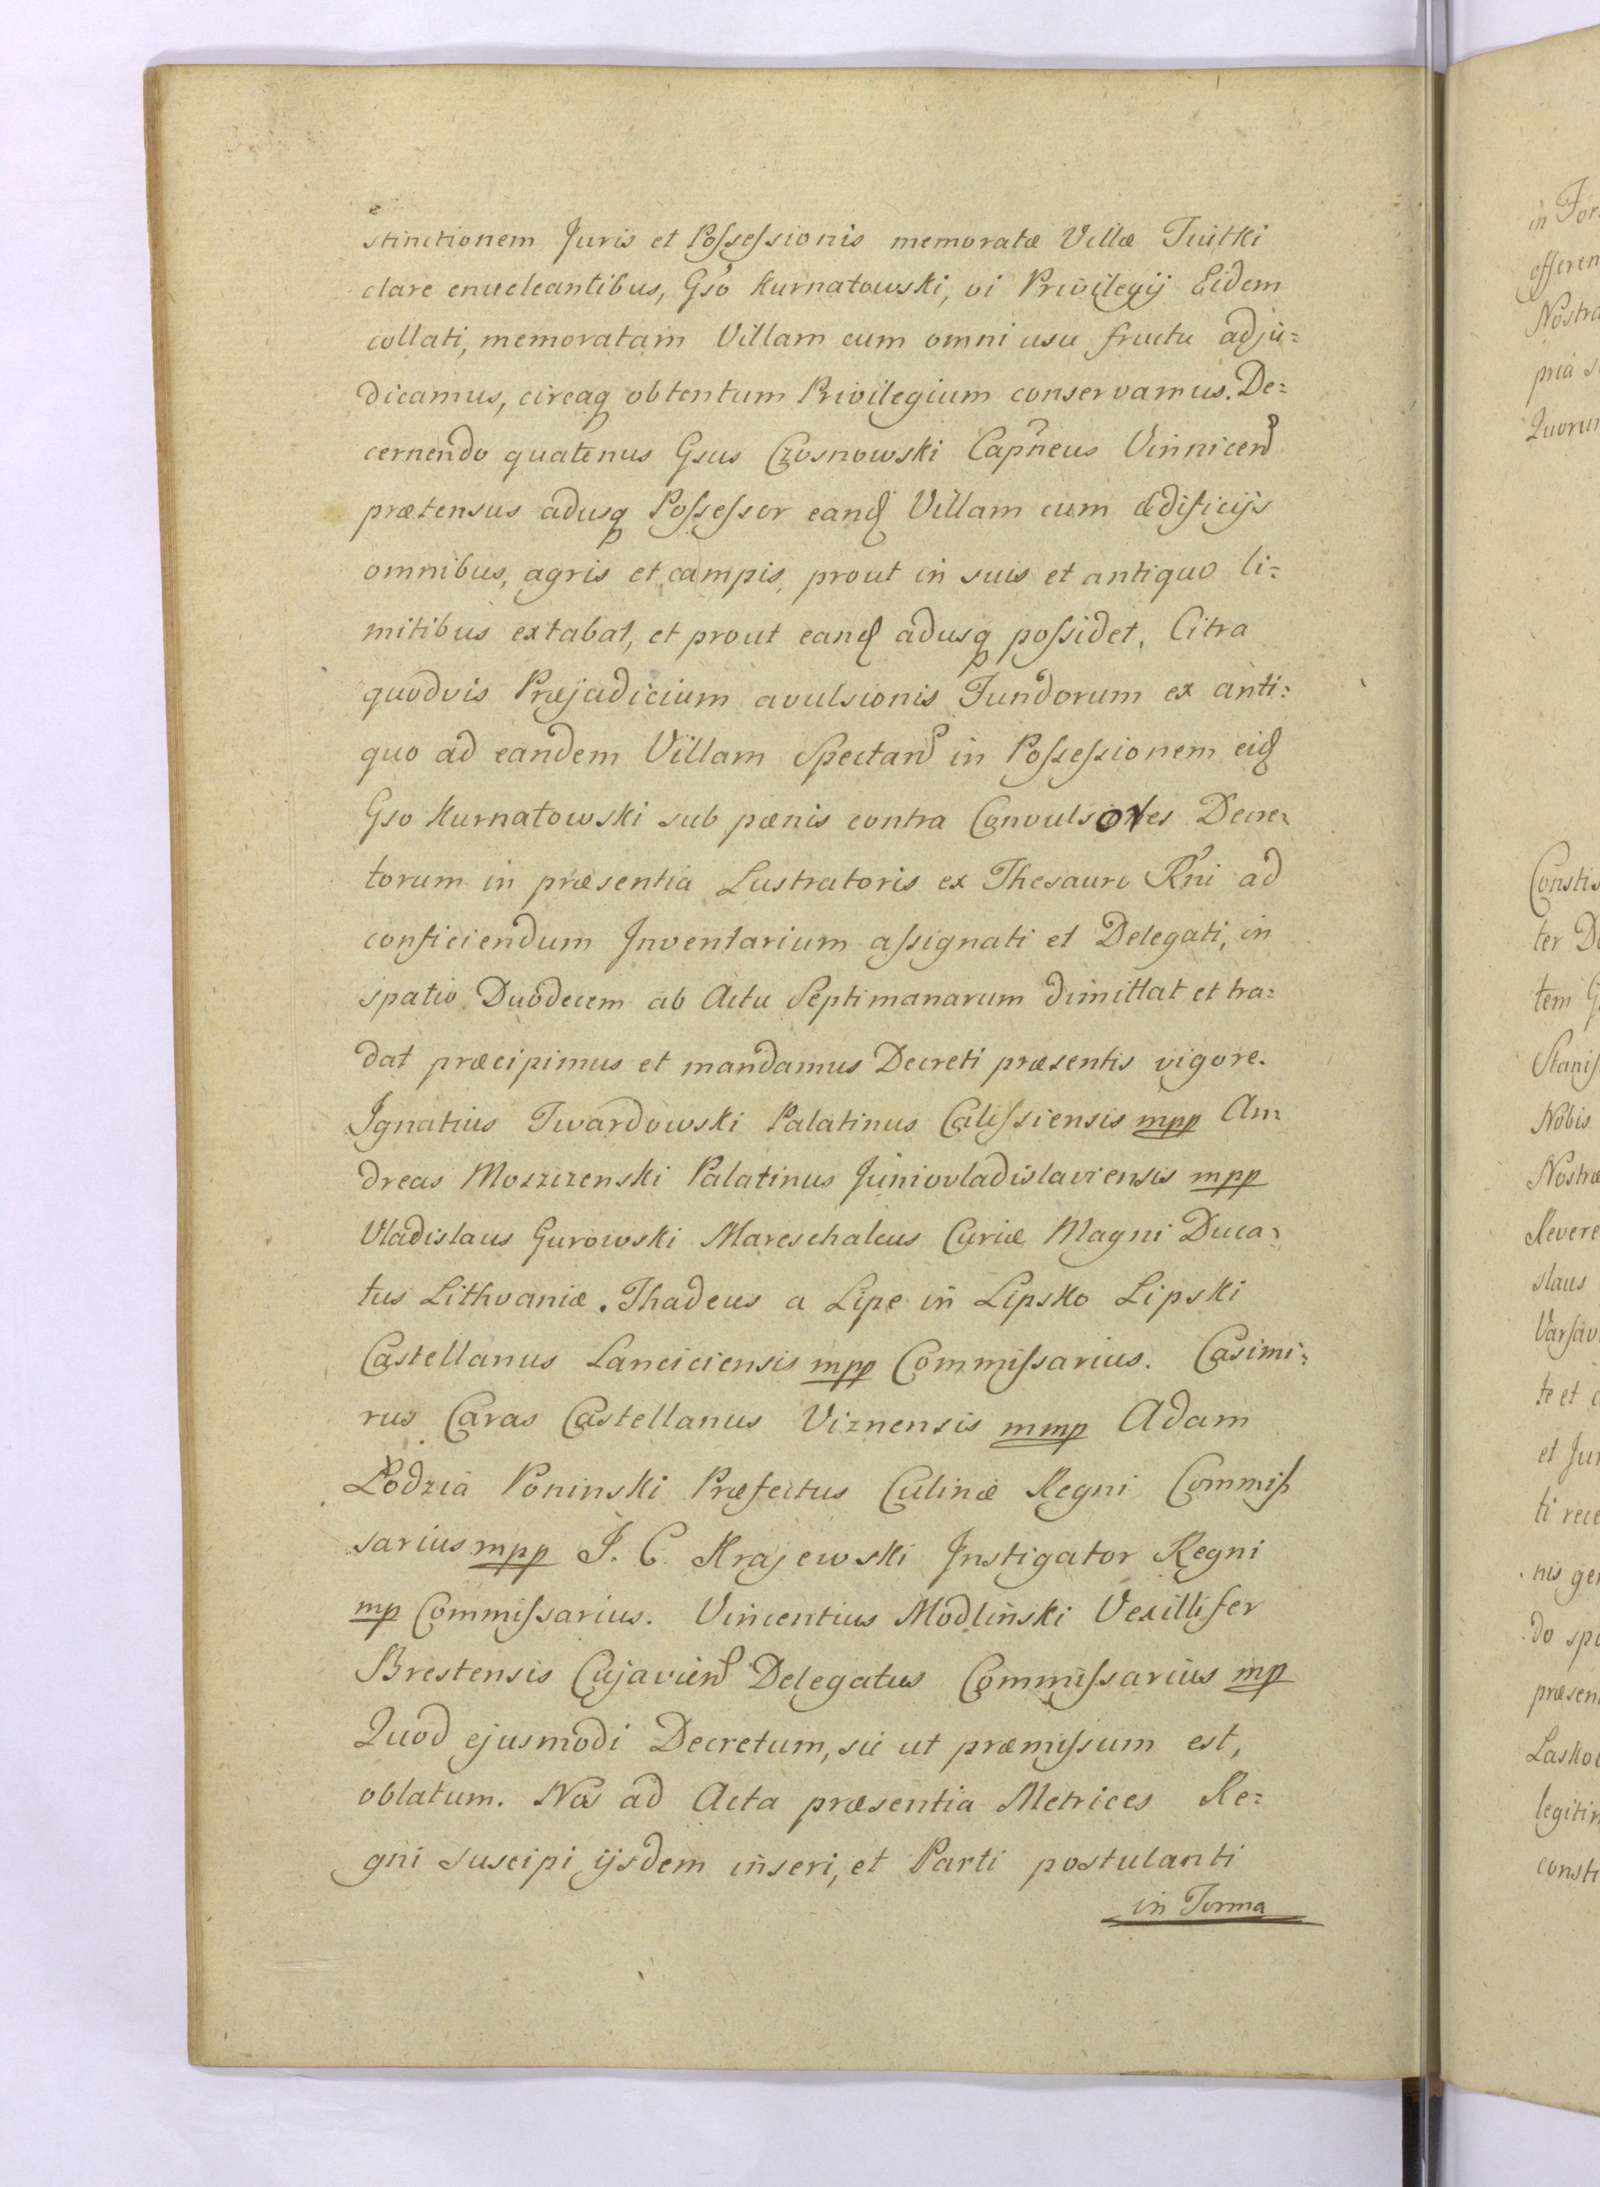 stinctionem Juris et Possessionis memoratæ Villæ Tiutki
clare enucleantibus, Gso Kurnatowski, vi Privilegij Eidem
collati, memoratam Villam cum omni usu fructu adju=
dicamus, circaq obtentum Privilegium conservamus. De=
cernendo quatenus Gsus Czosnowski Capneus Vinnicen
prætensus adusq Possessor eand Villam cum ædificijs
omnibus, agris et campis, prout in suis et antiquo li=
mitibus extabat, et prout eand adusq possidet, Citra
quodvis Præjudicium avulsionis Fundorum ex anti=
quo ad eandem Villam Spectan in Possessionem eid
Gso Kurnatowski sub pænis contra Convulsores Decre=
torum in præsentia Lustratoris ex Thesauro Rni ad
conficiendum Inventarium assignati et Delegati, in
spatio Duodecem ab Actu Septimanarum dimittat et tra=
dat præcipimus et mandamus Decreti præsentis vigore.
Ignatius Twardowski Palatinus Calissiensis mpp An=
dreas Moszczenski Palatinus Juniovladislaviensis mpp
Vladislaus Gurowski Mareschalcus Curiæ Magni Duca=
tus Lithvaniæ. Thadeus a Lipe in Lipsko Lipski
Castellanus Lanciciensis mpp Commissarius. Casimi=
rus Caras Castellanus Viznensis mmp Adam
Lodzia Poninski Præfectus Culinæ Regni Commiss
sarius mpp J. C. Krajewski Instigator Regni
mp Commissarius. Vincentius Modlinski Vexillifer
Brestensis Cujavien Delegatus Commissarius mp
Quod ejusmodi Decretum, sic ut præmissum est,
oblatum. Nos ad Acta præsentia Metrices Re=
gni suscipi ijsdem inseri, et Parti postulanti
in Forma